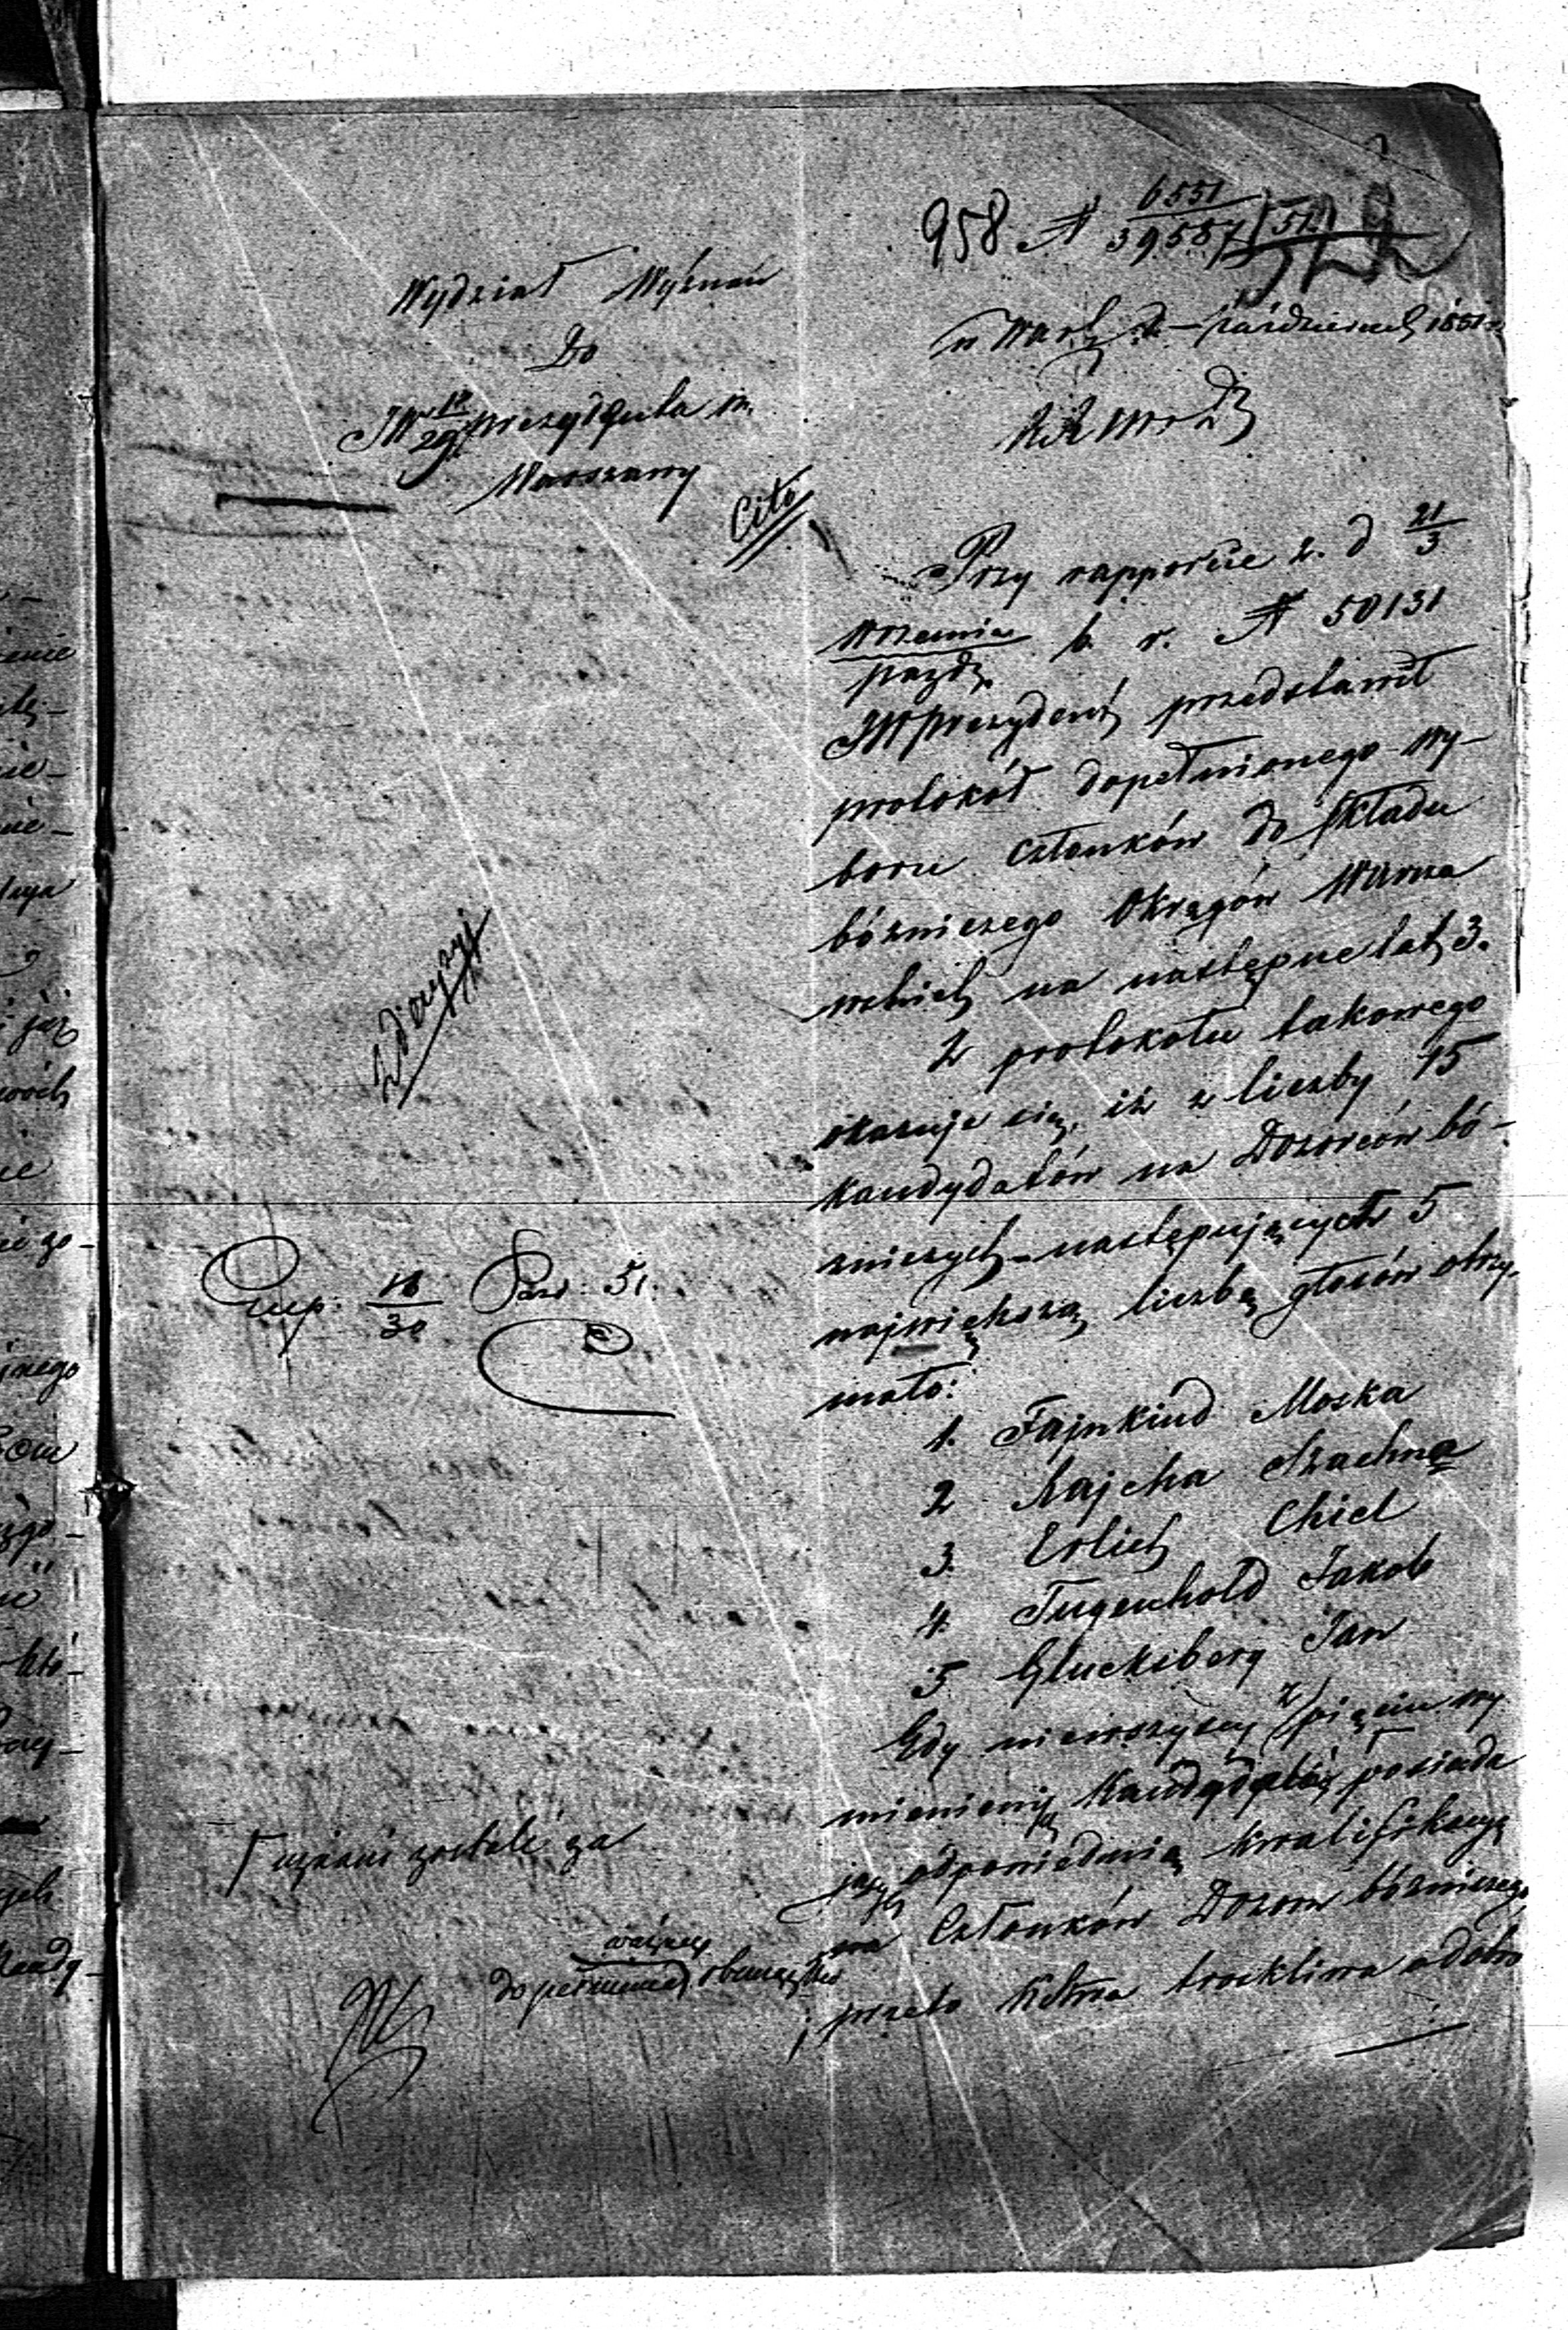 958 N 6551
39587/51
Wydział Wyznań
Do
JW Prezydenta m.
Warszawy
18
29
w Warsz. d. — Października 1851 r.
K R S W i D
Cito
Przy rapporcie z. d 21
3
Września
paźdz.
b. r. N 50131
JW Prezydent przedstawił
protokół dopełnionego wy-
boru członków do składu
bóżniczego Okręgów Warsza
wskich na następne lat 3.
Z protokołu takowego
okazuje się, iż z liczby 15
kandydatów na Dozorców bó-
żniczych następujących 5
największą liczbę głosów otrzy-
mało:
1. Fajnkind Moska
2 Rajcha Szachna
3. Erlich Chiel
4. Tugenhold Jakob
5 Glucksberg Jan
Gdy wszyscy z pięciu wy
mienieni Kandydaci posiada
ją odpowiednią kwalifikacyą
na Członków Dozoru bóżniczego
przeto
Exp. 18
30
Paźd: 51.
uznani zostali za